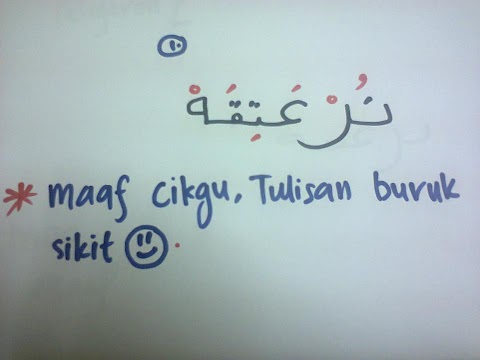 ١٠
نُرْ عَتِقَهْ
* maaf cikgu, Tulisan buruk
sikit